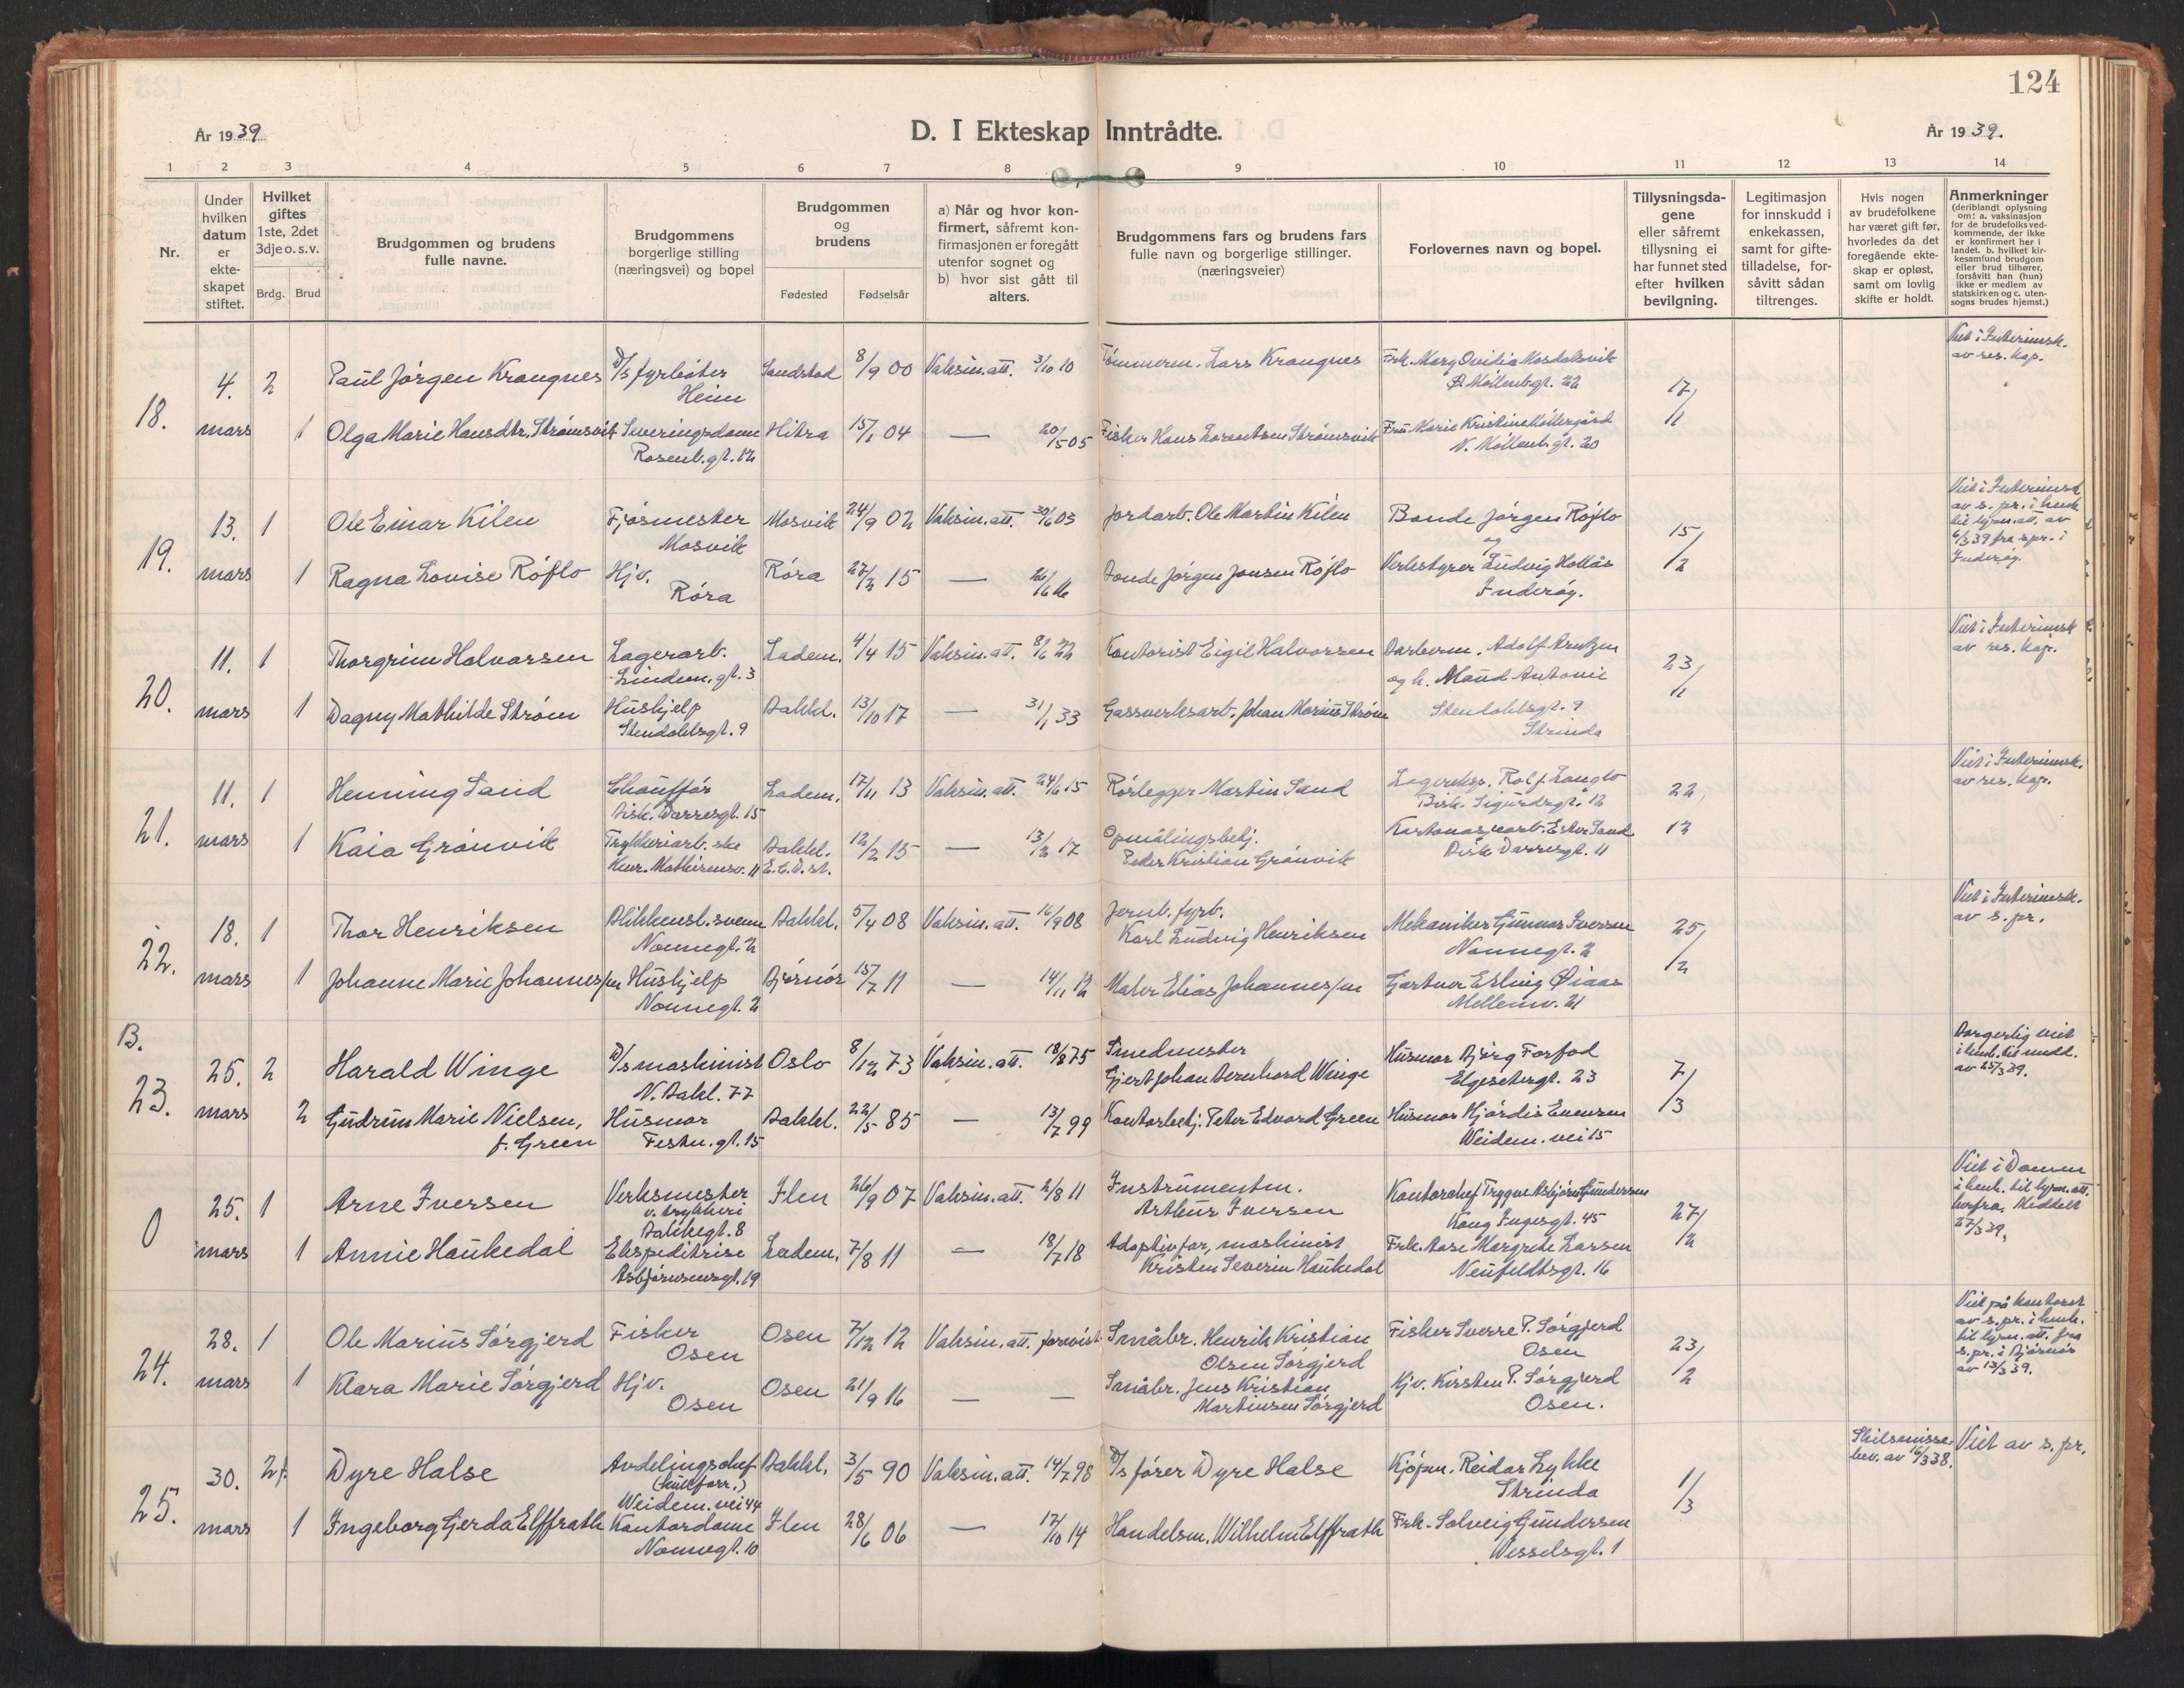 124
År 1939
D. I Ekteskap Inntrådte.
År 1939.
1 2 3 4 5 6 7 8 9 10 11 12 13 14
Nr.
Under hvilken datum er ekte-skapet stiftet.
Hvilket giftes 1ste, 2det 3dje o. s. v.
Brdg. Brud
Brudgommen og brudens fulle navne.
Brudgommens borgerlige stilling (næringsvei) og bopel
Brudgommen og brudens
Fødested Fødselsår
a) Når og hvor kon-firmert, såfremt kon-firmasjonen er foregått utenfor sognet og
b) hvor sist gått til alters.
Brudgommens fars og brudens fars fulle navn og borgerlige stillinger. (næringsveier)
Forlovernes navn og bopel.
Tillysningsda-gene eller såfremt tillysning ei har funnet sted efter hvilken bevilgning.
Legitimasjon for innskudd i enkekassen, samt for gifte-tilladelse, for-såvitt sådan tiltrenges.
Hvis nogen av brudefolkene har været gift før, hvorledes da det foregående ekte-skap er opløst, samt om lovlig skifte er holdt.
Anmerkninger (deriblandt oplysning om: a. vaksinasjon for de brudefolksved-kommende, der ikke er konfirmert her i landet. b. hvilket kir-kesamfund brudgom eller brud tilhører, forsåvitt han (hun) ikke er medlem av statskirken og c. uten-sogns brudes hjemst.)
18.
4. 2 Paul Jørgen Krangnes D/s fyrbøter Sandstad 8/9 00 Vaksin.att. 3/10 10 Tømmerm. Lars Krangnes
Heim
Ø. Møllenb.gt. 22
17/11
Viet i Interimsk. av res. kap.
mars 1 Olga Marie Hansdtr. Strømsvik Serveringsdame Hitra 15/1 04 — 20/5 05 Fisker Hans Lorentsen Strømsvik Fru Marie Kristine Møllergård
Rosenb.gt. 12
N. Møllenb.gt. 20
19.
13. 1 Ole Einar Kilen Fjøsmester Mosvik 24/9 02 Vaksin.att. 30/6 03 Jordarb. Ole Martin Kilen Bonde Jørgen Røflo
Mosvik
og
15/2
mars 1 Ragna Lovise Røflo Hjv. Røra 27/2 15 — 26/6 16 Bonde Jørgen Jonsen Røflo Verkstyrer Ludvig Hollås
Røra
Inderøy.
Viet i Interimsk. av s. pr. i henh. til lysn.att. av 6/3 39 fra s.pr. i Inderøy.
20.
11. 1 Thorgrim Halvorsen Lagerarb. Ladem. 4/4 15 Vaksin.att. 8/6 22 Kontorist Eigil Halvorsen Barberm. Adolf Arntzen
Lindem.gt. 3
og h. Maud Antonie
23/11
mars 1 Dagny Mathilde Strøm Hushjelp Bakkl. 13/10 17 — 31/1 33 Gassverksarb. Johan Marius Strøm
Stendahlsgt. 9
Stendahlsgt. 9
Strinda
Viet i Interimsk av res. kap.
21.
11. 1 Henning Sand Chauffør Ladem. 17/11 13 Vaksin.att. 24/6 15 Rørlegger Martin Sand Lagereksp. Rolf Langlo
Bisk. Darresgt. 15
Bisk. Sigurdsgt. 12
22/12
mars 1 Kaia Grønvik Trykkeriarb.ske Bakkl. 12/2 15 — 13/12 17 Opmålingsbetj. Kartonasjearb. Ester Sand
Peder Kristian Grønvik
Bisk Darresgt. 11
Viet i Interimsk. av res. kap.
22.
18. 1 Thor Henriksen Blikkensl.svenn Bakkl. 5/4 08 Vaksin.att. 16/9 08 Jernb.fyrb. Mekaniker Gunnar Iversen
Nonnegt. 2
Karl Ludvig Henriksen
Nonnegt. 2
25/2
mars 1 Johanne Marie Johannessen Hushjelp Bjørnør 15/7 11 — 14/11 12 Maler Elias Johannessen Gartner Erling Øiaas
Nonnegt. 2
Mellemv. 21
Viet i Interimsk. av s. pr.
B.
23.
25. 2 Harald Winge D/s maskinist Oslo 8/12 73 Vaksin.att. 18/8 75 Smedmester Husmor Bjørg Forfod
N. Bakl. 77
Gjert Johan Bernhard Winge
Elgesetergt. 23
7/3
mars 2 Gudrun Marie Nielsen, Husmor Bakkl. 22/5 85 — 13/7 99 Kontorbetj. Peter Edvard Green Husmor Hjørdis Evensen
f. Green
Festn.gt. 15
Weidem.vei 15
Borgerlig viet i henh. til medd. av 25/3 39.
0
25. 1 Arne Iversen Verksmester Ilen 26/9 07 Vaksin.att. 2/8 11 Instrumentm. Kontorchef Trygve Asbjørn Gundersen
v. trykkeri
Bakkegt. 8
Arthur Iversen
Kong Ingesgt. 45
27/2
mars 1 Annie Haukedal Ekspeditrise Ladem. 7/8 11 — 18/7 18 Adoptivfar, maskinist Frk. Aase Margrete Larsen
Asbjørnsensgt. 19
Kristen Severin Haukedal
Neufeldtsgt. 16
Viet i Domen i henh. til lysn.att. herfra. Meddelt 27/3 39.
24.
28. 1 Ole Marius Sørgjerd Fisker Osen 7/12 12 Vaksin.att. forevist Småbr. Henrik Kristian Fisker Sverre P. Sørgjerd
Osen
Olsen Sørgjerd
Osen
23/2
mars 1 Klara Marie Sørgjerd Hjv. Osen 21/9 16 — — Småbr. Jens Kristian Hjv. Kirsten P. Sørgjerd
Osen
Martinsen Sørgjerd
Osen.
Viet på kontoret av s.pr. i henh. til lysn.att. fra s.pr. i Bjørnør av 13/3 39.
25.
30. 2f. Dyre Halse Avdelingschef Bakkl. 3/5 90 Vaksin.att. 14/7 98 D/s fører Dyre Halse Kjøpm. Reidar Lykke
Weidem.vei 44
Strinda
1/3
Skilsmisse-bev. av 16/3 38.
Viet av s. pr.
mars 1 Ingeborg Gjerda Elffrath Kontordame Ilen 28/6 06 — 17/10 14 Handelsm. Wilhelm Elffrath Frk. Solveig Gundersen
Nonnegt. 10
Wesselsgt. 1